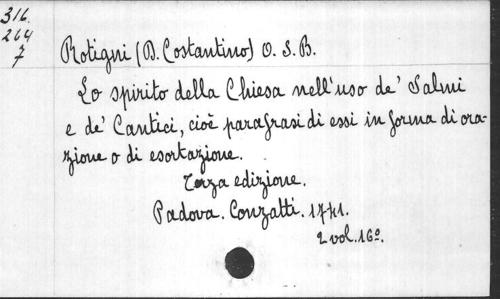 316.
264
7
Rotigni (D. Costantino) O. S. B.
Lo spirito della Chiesa nell'uso de' Salmi
e de' Cantici, cioè parafrasi di essi in forma di ora-
zione o di esortazione.
Terza edizione.
Padova. Conzatti. 1771.
2 vol. 16º.